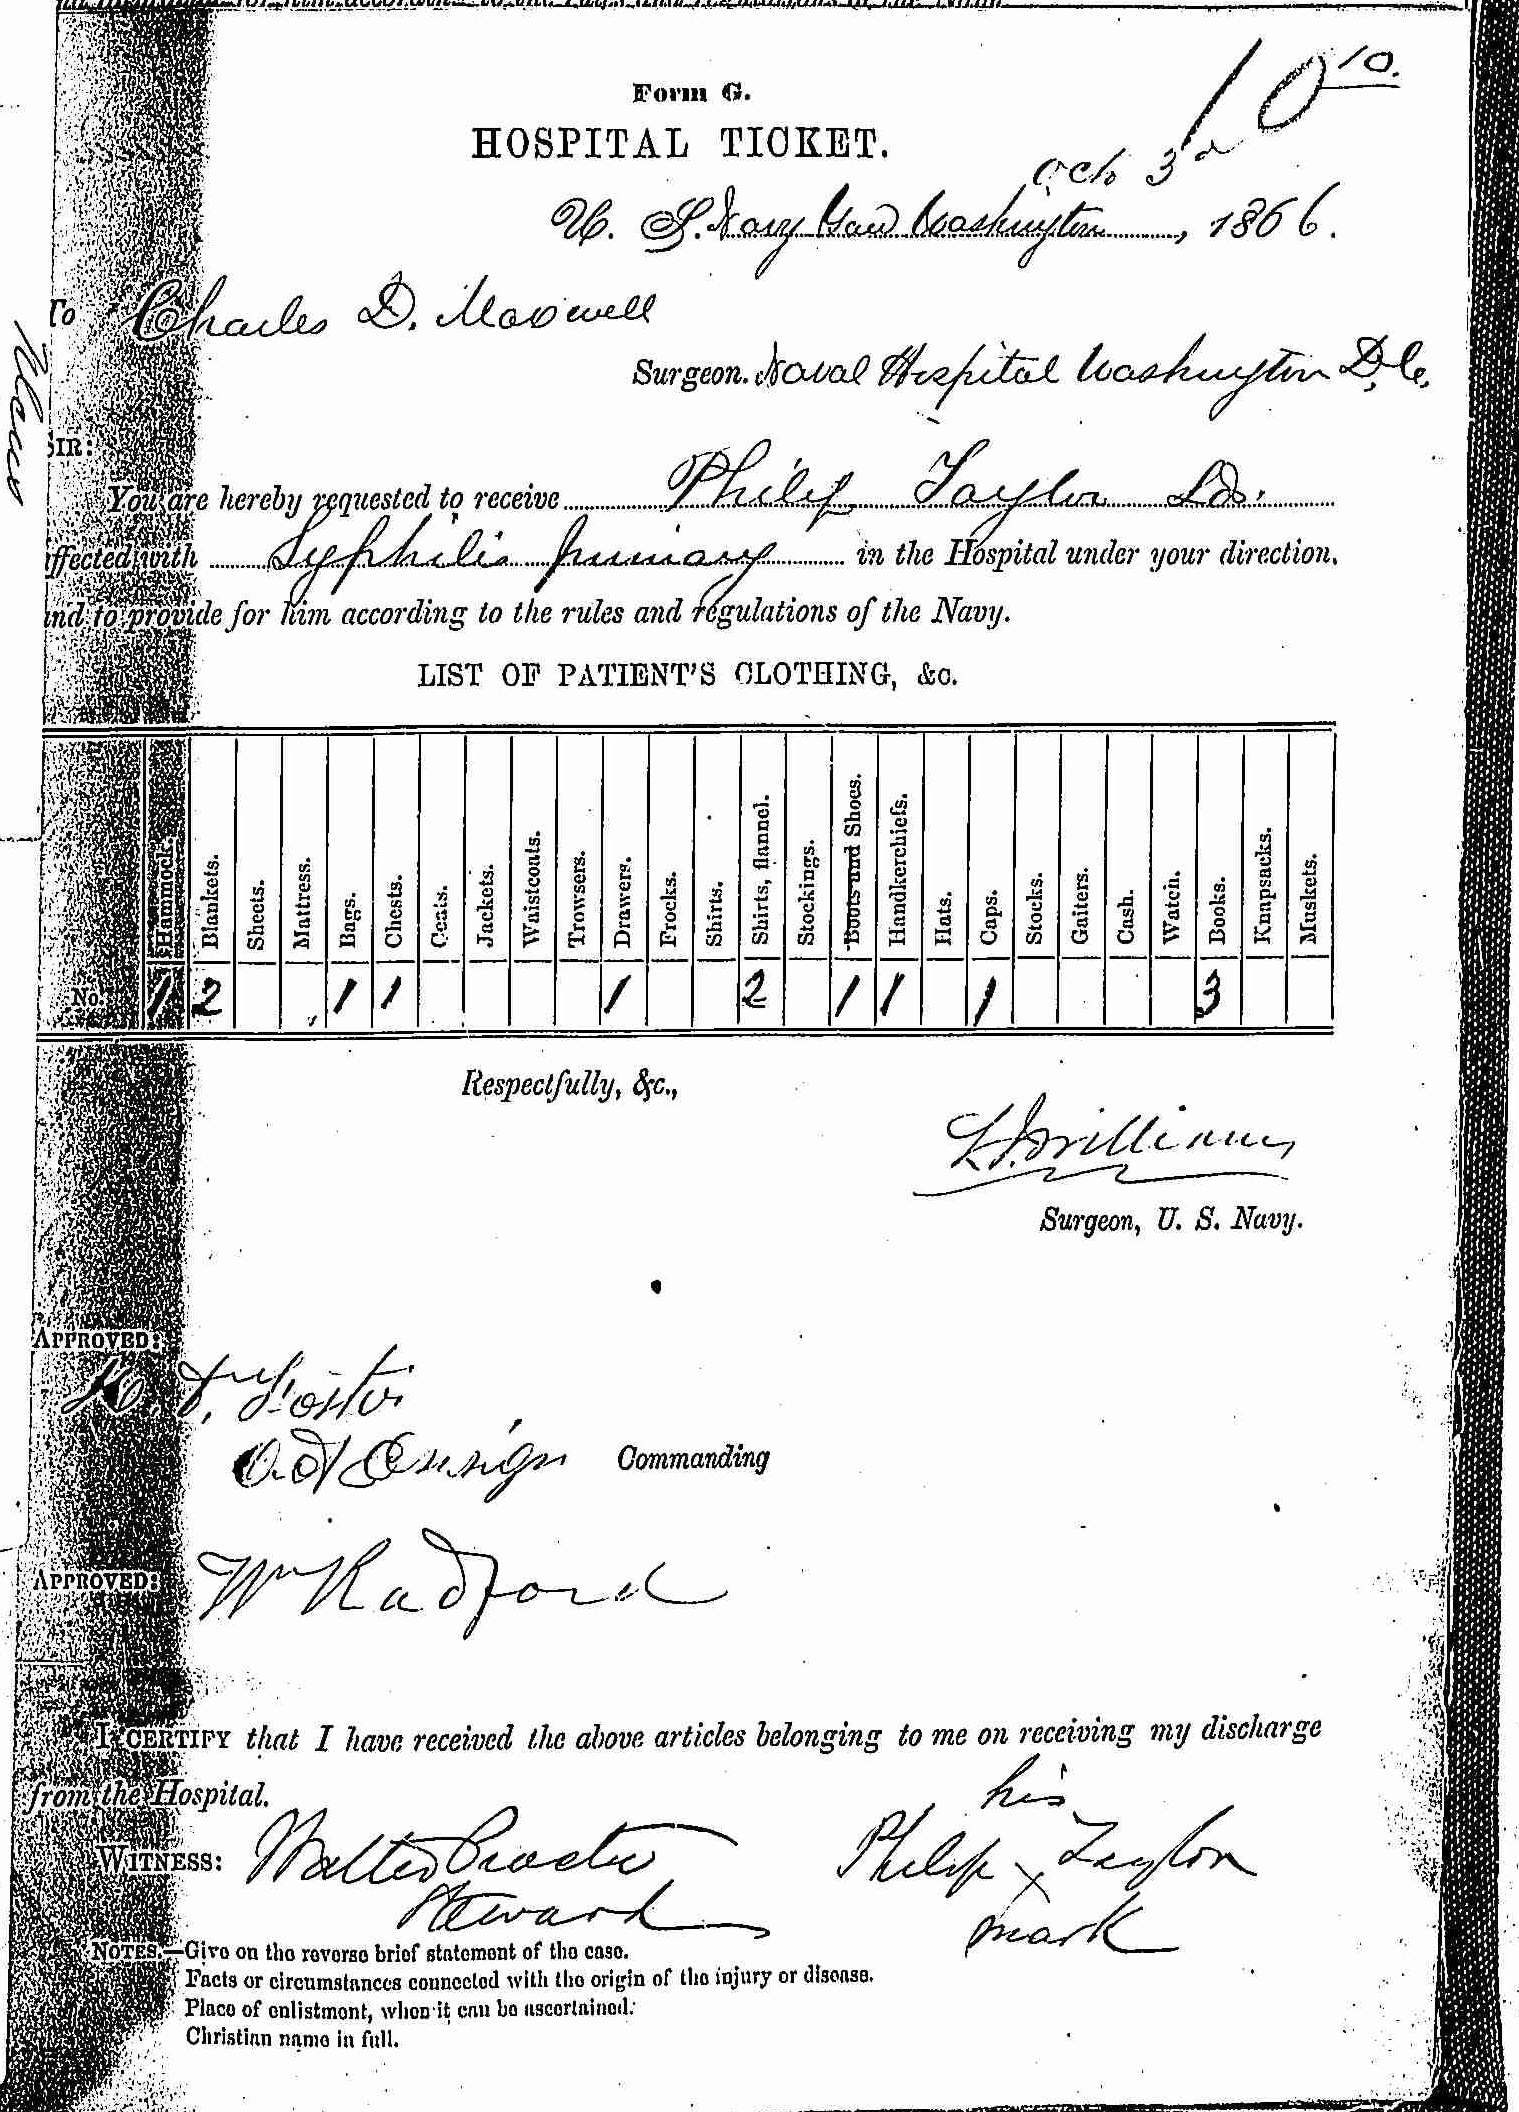 Form G.
10 10.
HOSPITAL TICKET.
Oct 3d
U. S. Navy Yard Washington, 1866.
To Charles D. Maxwell
Surgeon. Naval Hospital Washington D.C.
Ulcus
SIR:
You are hereby requested to receive Philip Taylor Lds.
affected with Syphilis primary in the Hospital under your direction,
and to provide for him according to the rules and regulations of the Navy.
LIST OF PATIENT'S CLOTHING, &c.
Hammock. Blankets. Sheets. Mattress. Bags. Chests. Coats. Jackets. Waistcoats. Trowsers. Drawers. Frocks. Shirts. Shirts, flannel. Stockings. Boots and Shoes. Handkerchiefs. Hats. Caps. Stocks. Gaiters. Cash. Watch. Books. Knapsacks. Muskets.
No. 1 2 1 1 1 2 1 1 1 3
Respectfully, &c.,
Williams
Surgeon, U. S. Navy.
APPROVED:
Foster
Ensign Commanding
APPROVED: Wm Radford
I CERTIFY that I have received the above articles belonging to me on receiving my discharge
from the Hospital.
his
WITNESS: Walter Procter Philip x Taylor
Steward mark
NOTES.—Give on the reverse brief statement of the case.
Facts or circumstances connected with the origin of the injury or disease.
Place of enlistment, when it can be ascertained.
Christian name in full.